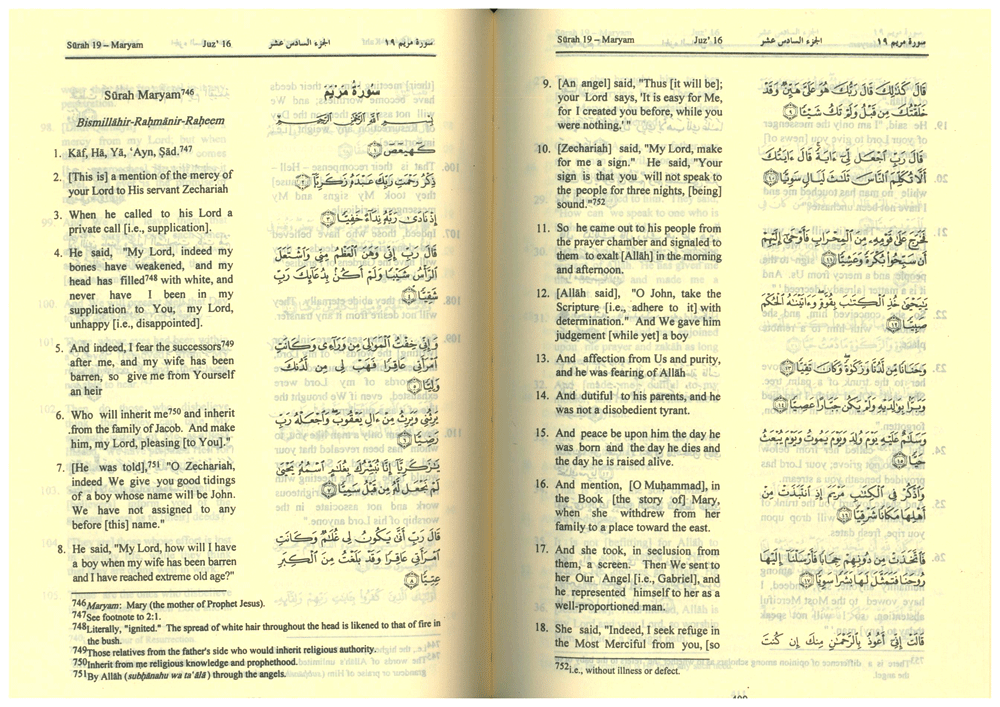 Sūrah 19 – Maryam Juz' 16 الجزء السادس عشر سورة مريم ١٩
Sūrah Maryam746
Bismillāhir-Raḥmānir-Raḥeem
1. Kāf, Hā, Yā, 'Ayn, Ṣād.747
2. [This is] a mention of the mercy of
your Lord to His servant Zechariah
3. When he called to his Lord a
private call [i.e., supplication].
4. He said, "My Lord, indeed my
bones have weakened, and my
head has filled748 with white, and
never have I been in my
supplication to You, my Lord,
unhappy [i.e., disappointed].
5. And indeed, I fear the successors749
after me, and my wife has been
barren, so give me from Yourself
an heir
6. Who will inherit me750 and inherit
from the family of Jacob. And make
him, my Lord, pleasing [to You]."
7. [He was told],751 "O Zechariah,
indeed We give you good tidings
of a boy whose name will be John.
We have not assigned to any
before [this] name."
8. He said, "My Lord, how will I have
a boy when my wife has been barren
and I have reached extreme old age?"
سُورَةُ مَرْيَمَ
بِسْمِ ٱللَّهِ ٱلرَّحْمَـٰنِ ٱلرَّحِيمِ
كٓهيعٓصٓ ١
ذِكْرُ رَحْمَتِ رَبِّكَ عَبْدَهُۥ زَكَرِيَّآ ٢
إِذْ نَادَىٰ رَبَّهُۥ نِدَآءً خَفِيًّا ٣
قَالَ رَبِّ إِنِّى وَهَنَ ٱلْعَظْمُ مِنِّى وَٱشْتَعَلَ
ٱلرَّأْسُ شَيْبًا وَلَمْ أَكُنۢ بِدُعَآئِكَ رَبِّ
شَقِيًّا ٤
وَإِنِّى خِفْتُ ٱلْمَوَٰلِىَ مِن وَرَآءِى وَكَانَتِ
ٱمْرَأَتِى عَاقِرًا فَهَبْ لِى مِن لَّدُنكَ
وَلِيًّا ٥
يَرِثُنِى وَيَرِثُ مِنْ ءَالِ يَعْقُوبَ وَٱجْعَلْهُ رَبِّ
رَضِيًّا ٦
يَـٰزَكَرِيَّآ إِنَّا نُبَشِّرُكَ بِغُلَـٰمٍ ٱسْمُهُۥ يَحْيَىٰ
لَمْ نَجْعَل لَّهُۥ مِن قَبْلُ سَمِيًّا ٧
قَالَ رَبِّ أَنَّىٰ يَكُونُ لِى غُلَـٰمٌ وَكَانَتِ
ٱمْرَأَتِى عَاقِرًا وَقَدْ بَلَغْتُ مِنَ ٱلْكِبَرِ
عِتِيًّا ٨
746Maryam: Mary (the mother of Prophet Jesus).
747See footnote to 2:1.
748Literally, "ignited." The spread of white hair throughout the head is likened to that of fire in
the bush.
749Those relatives from the father's side who would inherit religious authority.
750Inherit from me religious knowledge and prophethood.
751By Allāh (subḥānahu wa ta'ālā) through the angels.
Sūrah 19 – Maryam Juz' 16 الجزء السادس عشر سورة مريم ١٩
9. [An angel] said, "Thus [it will be];
your Lord says, 'It is easy for Me,
for I created you before, while you
were nothing.'"
10. [Zechariah] said, "My Lord, make
for me a sign." He said, "Your
sign is that you will not speak to
the people for three nights, [being]
sound."752
11. So he came out to his people from
the prayer chamber and signaled to
them to exalt [Allāh] in the morning
and afternoon.
12. [Allāh said], "O John, take the
Scripture [i.e., adhere to it] with
determination." And We gave him
judgement [while yet] a boy
13. And affection from Us and purity,
and he was fearing of Allāh
14. And dutiful to his parents, and he
was not a disobedient tyrant.
15. And peace be upon him the day he
was born and the day he dies and
the day he is raised alive.
16. And mention, [O Muḥammad], in
the Book [the story of] Mary,
when she withdrew from her
family to a place toward the east.
17. And she took, in seclusion from
them, a screen. Then We sent to
her Our Angel [i.e., Gabriel], and
he represented himself to her as a
well-proportioned man.
18. She said, "Indeed, I seek refuge in
the Most Merciful from you, [so
قَالَ كَذَٰلِكَ قَالَ رَبُّكَ هُوَ عَلَىَّ هَيِّنٌ وَقَدْ
خَلَقْتُكَ مِن قَبْلُ وَلَمْ تَكُ شَيْئًا ٩
قَالَ رَبِّ ٱجْعَل لِّىٓ ءَايَةً قَالَ ءَايَتُكَ
أَلَّا تُكَلِّمَ ٱلنَّاسَ ثَلَـٰثَ لَيَالٍ سَوِيًّا ١٠
فَخَرَجَ عَلَىٰ قَوْمِهِۦ مِنَ ٱلْمِحْرَابِ فَأَوْحَىٰٓ إِلَيْهِمْ
أَن سَبِّحُوا۟ بُكْرَةً وَعَشِيًّا ١١
يَـٰيَحْيَىٰ خُذِ ٱلْكِتَـٰبَ بِقُوَّةٍ وَءَاتَيْنَـٰهُ ٱلْحُكْمَ
صَبِيًّا ١٢
وَحَنَانًا مِّن لَّدُنَّا وَزَكَوٰةً وَكَانَ تَقِيًّا ١٣
وَبَرًّۢا بِوَٰلِدَيْهِ وَلَمْ يَكُن جَبَّارًا عَصِيًّا ١٤
وَسَلَـٰمٌ عَلَيْهِ يَوْمَ وُلِدَ وَيَوْمَ يَمُوتُ وَيَوْمَ يُبْعَثُ
حَيًّا ١٥
وَٱذْكُرْ فِى ٱلْكِتَـٰبِ مَرْيَمَ إِذِ ٱنتَبَذَتْ مِنْ
أَهْلِهَا مَكَانًا شَرْقِيًّا ١٦
فَٱتَّخَذَتْ مِن دُونِهِمْ حِجَابًا فَأَرْسَلْنَآ إِلَيْهَا
رُوحَنَا فَتَمَثَّلَ لَهَا بَشَرًا سَوِيًّا ١٧
قَالَتْ إِنِّىٓ أَعُوذُ بِٱلرَّحْمَـٰنِ مِنكَ إِن كُنتَ
752i.e., without illness or defect.